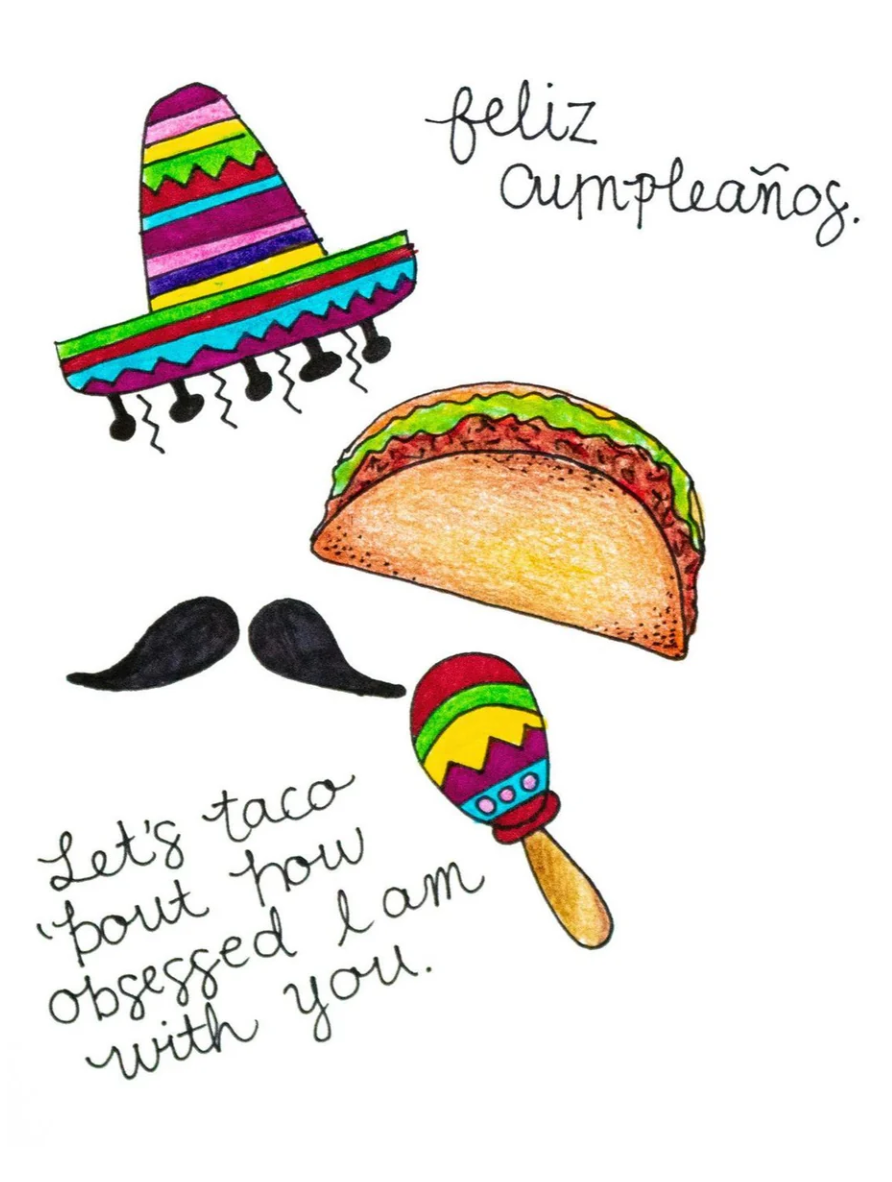 feliz
cumpleaños.
Let's taco
'bout how
obsessed I am
with you.